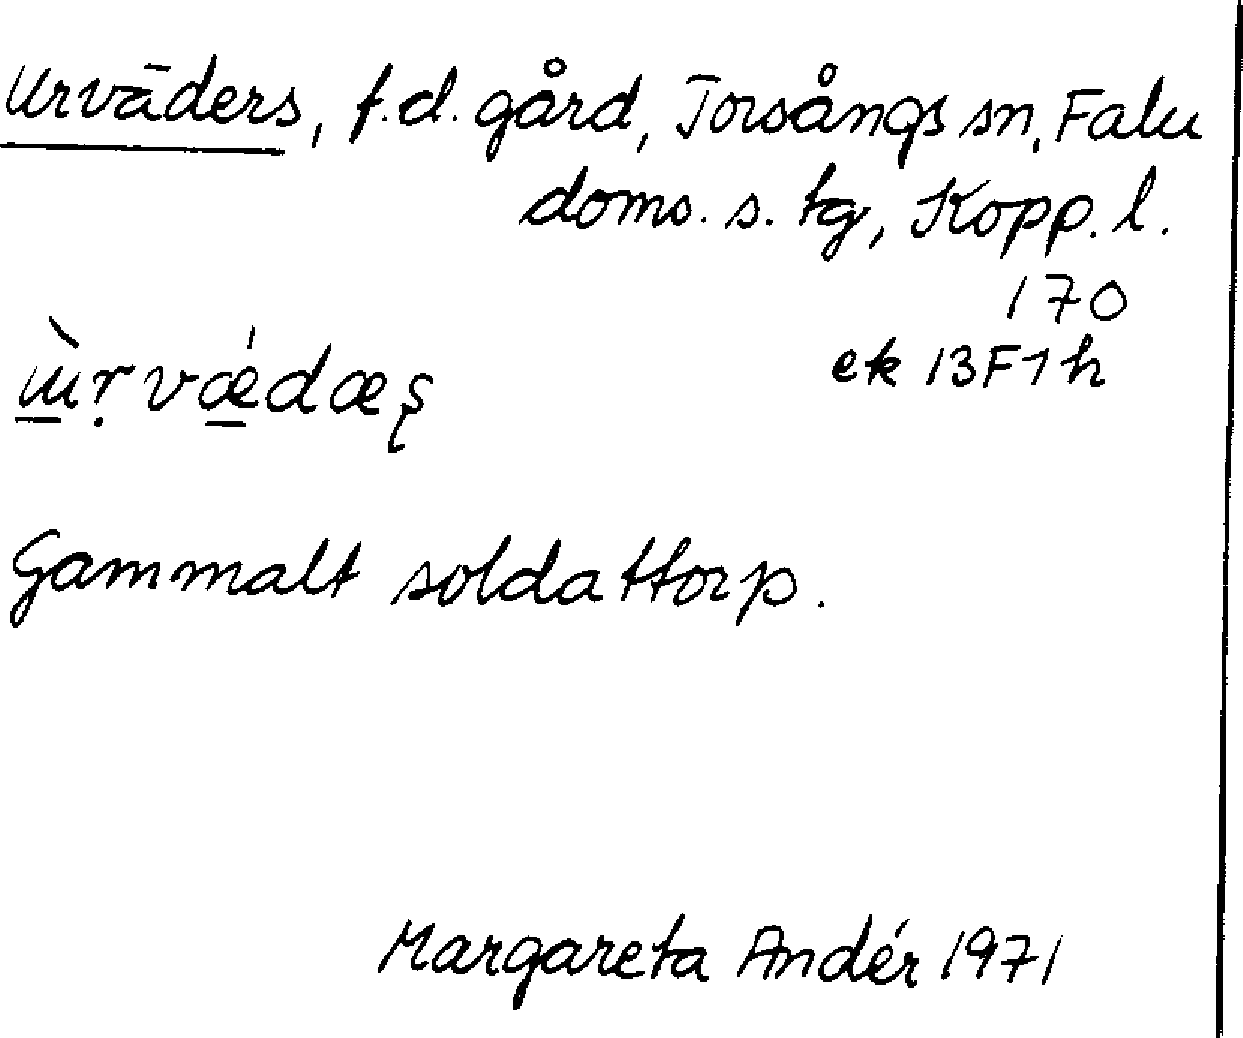 Urväders, f.d. gård, Torsångs sn, Falu
doms. s. tg, Kopp. l.
170
ek 13F7h
Gammalt soldattorp.
Margareta Andér 1971